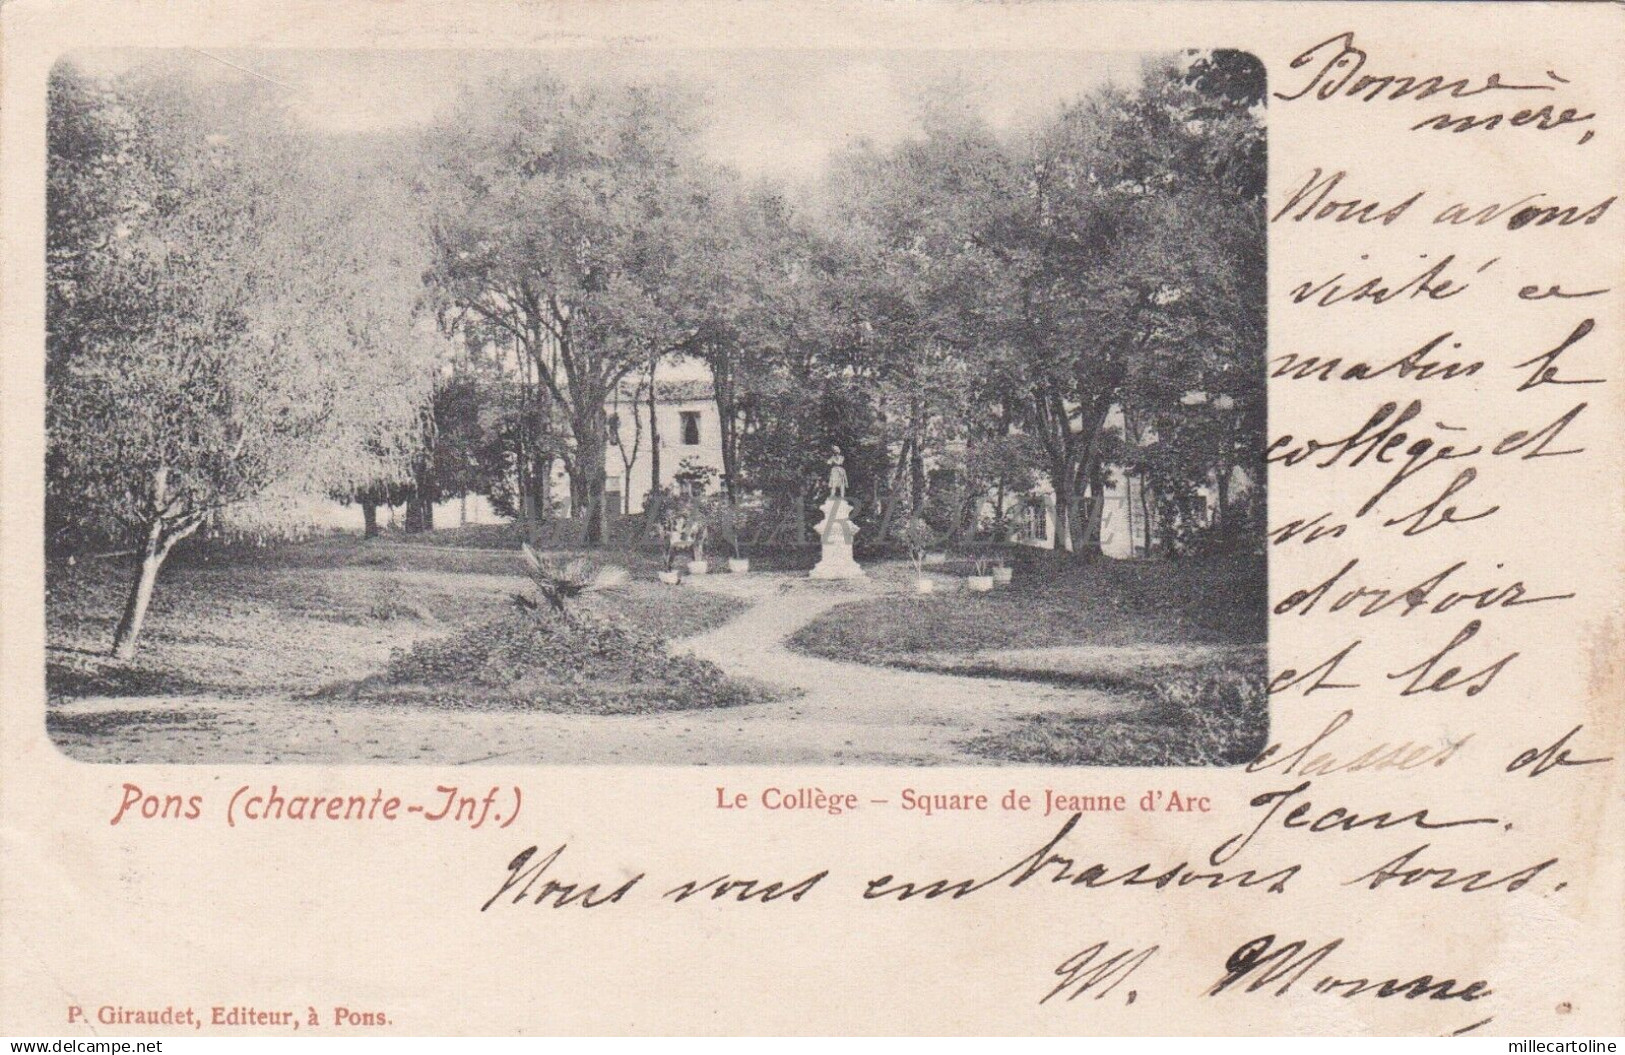 Bonne
mère,
Nous avons
visité ce
matin le
collège et
vu le
dortoir
et les
classes de
Jean.
Nous vous embrassons tous.
M. Monné
Pons (charente-Inf.)
Le Collège – Square de Jeanne d'Arc
P. Giraudet, Editeur, à Pons.
MILLECARTOLINE
delcampe.net
millecartoline